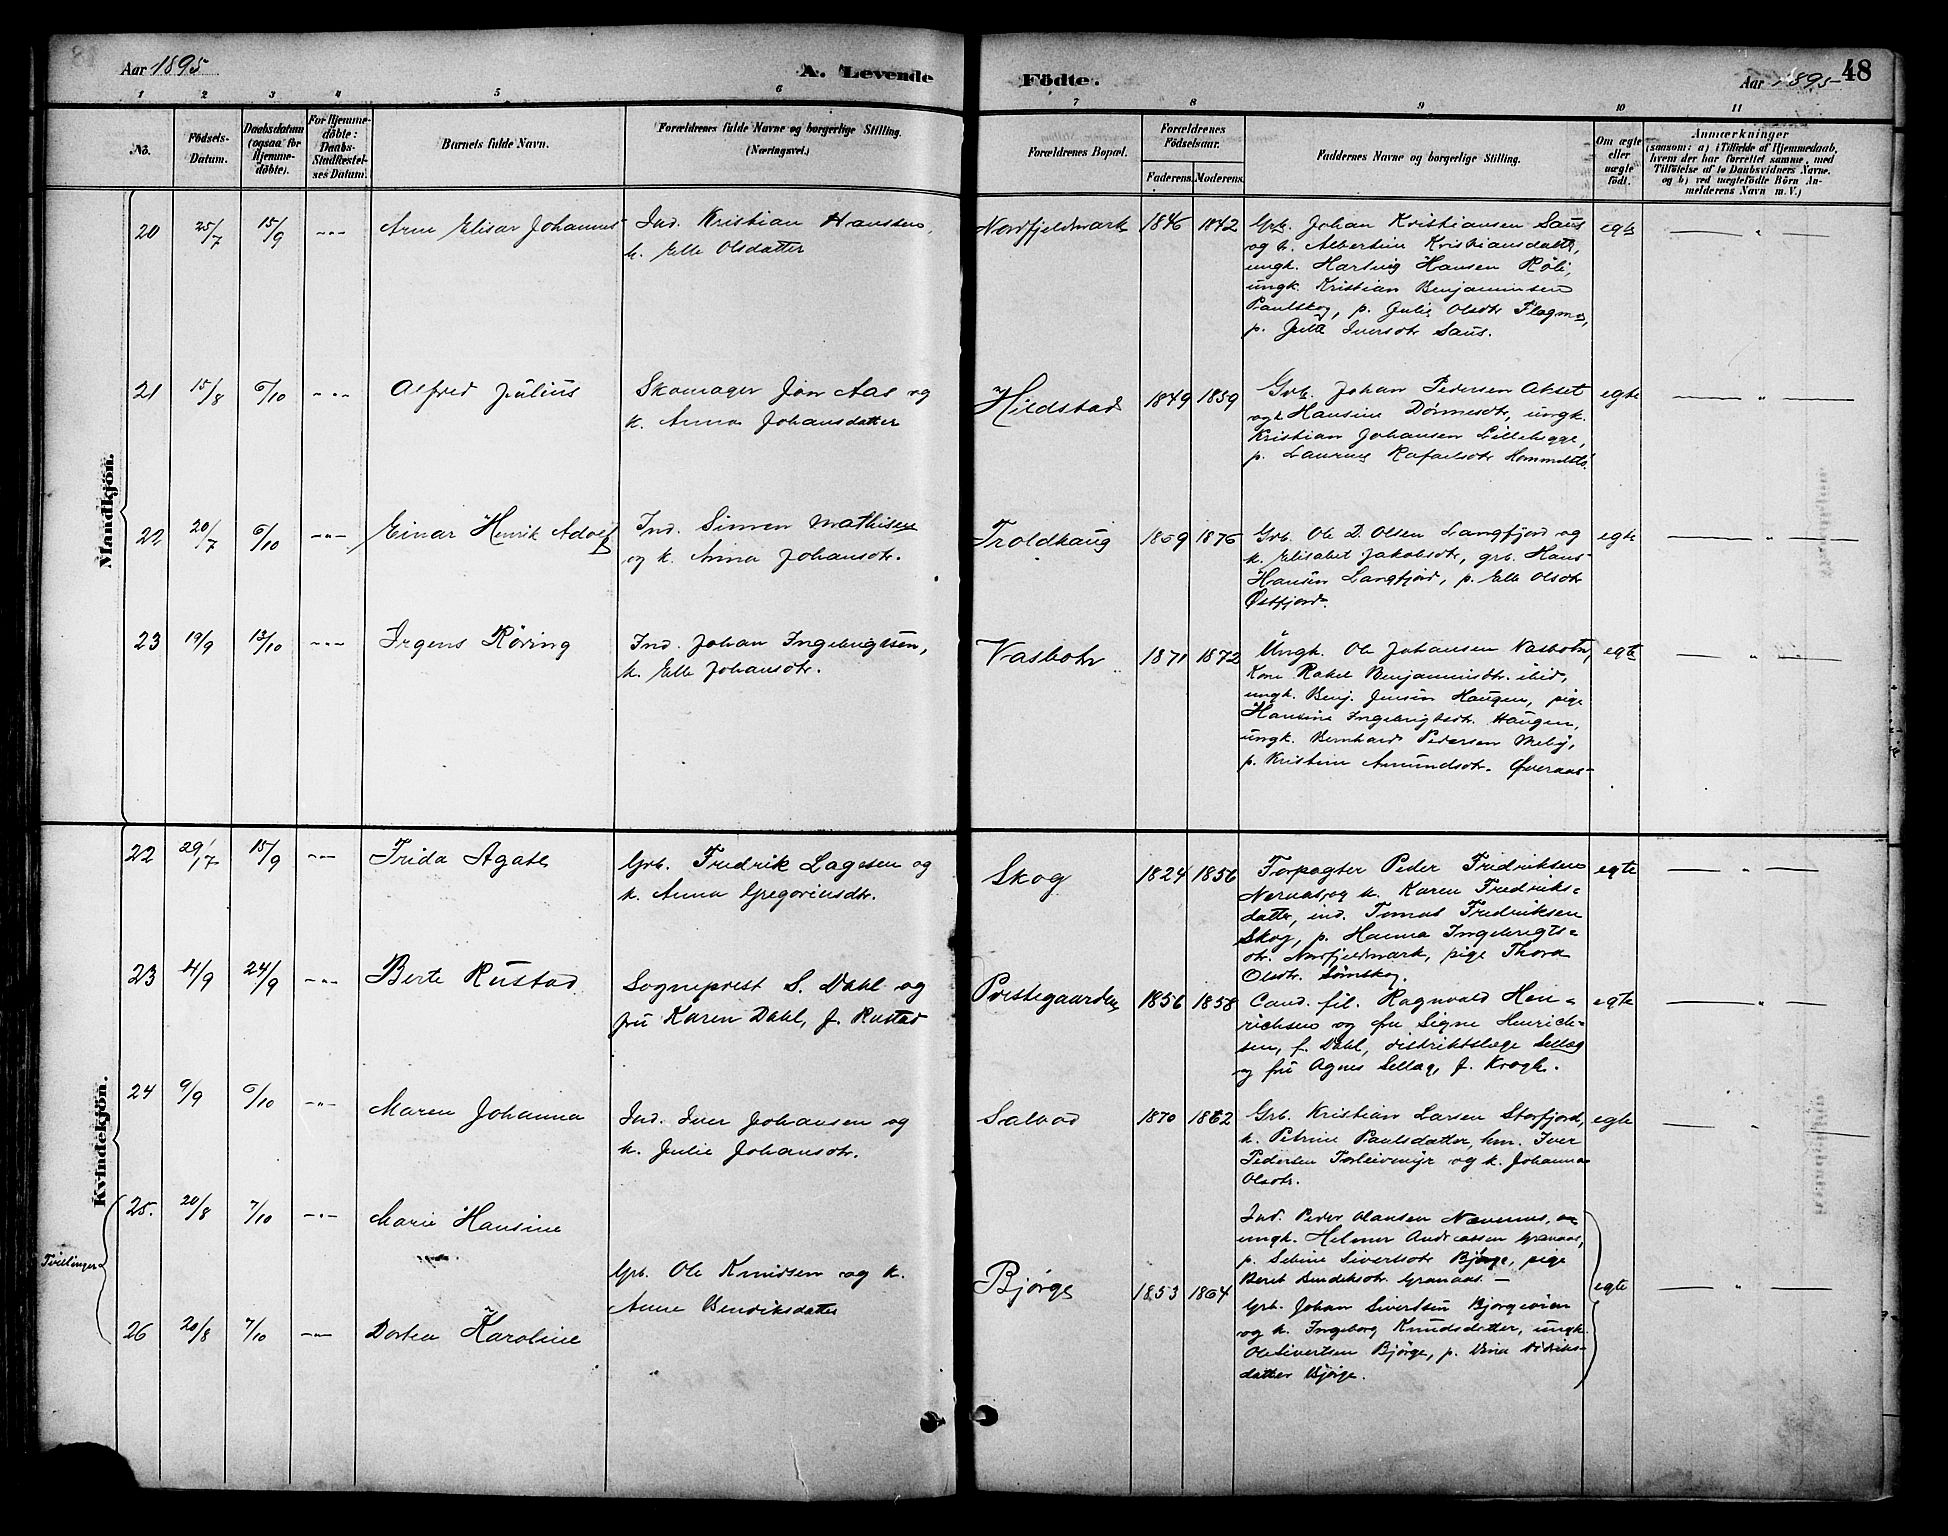 Aar 1895
A. Levende
Födte.
Aar 1895
48
1 2 3 4 5 6 7 8 9 10 11
No.
Födsels-
Datum.
Daabsdatum
(ogsaa for
Hjemme-
döbte).
For Hjemme-
döbte:
Daabs-
Stadfæstel-
ses Datum.
Barnets fulde Navn.
Forældrenes fulde Navne og borgerlige Stilling.
(Næringsvei.)
Forældrenes Bopæl.
Forældrenes
Födselsaar.
Faderens. Moderens.
Faddernes Navne og borgerlige Stilling.
Om ægte
eller
uægte
födt.
Anmærkninger
(saasom: a) i Tilfælde af Hjemmedaab,
hvem der har forrettet samme, med
Tilföielse af to Daabsvidners Navne,
og b) ved uægtefödte Börn An-
melderens Navn m. V.)
Mandkjön.
20 25/7 15/9 -"- Arne Elisar Johannes
Ind. Kristian Hansen,
k. Elle Olsdatter
Nordfjeldmark 1846 1842
Grb. Johan Kristiansen Saus
og k. Albertine Kristiansdatter,
ungk. Hartvig Hansen Röli,
ungk. Kristian Benjaminsen
Paulskog, p. Julie Olsdtr Flagmo,
p. Julie Iversdtr Saus.
egte — " —
21 15/8 6/10 -"- Alfred Julius
Skomager Jon Aas og
k. Anna Johansdatter
Hildstad 1849 1859
Grb. Johan Pedersen Akset
og k. Hansine Dönnesdtr, ungk.
Kristian Johansen Lillehegge,
p. Laurine Rafaelsdtr
egte — " —
22 20/7 6/10 -"- Einar Henrik Adolf
Ind. Simon Mathisen
og k. Anna Johansdtr.
Troldhaug 1869 1875
Grb. Ole D. Olsen Langfjord og
k. Elisabet Jakobsdtr, grb. Hans
Hansen Langfjord, p. Elle Olsdtr
Østfjord.
egte — " —
23 19/9 13/10 -"- Irgens Röring
Ind. Johan Ingebrigtsen,
k. Elle Johansdtr.
Vasbotn 1871 1872
Ungk. Ole Johansen Vasbotn,
Kone Rakel Benjaminsdtr. ibid,
ungk. Benj. Jensen Haugen, pige
Hansine Ingebrigtsdtr. Haugen,
ungk. Bernhard Pedersen Meby,
p. Kristine Amundsdtr. Øveraas-
egte — " —
Kvindekjön.
22 29/7 15/9 -"- Frida Agate
Grb. Fredrik Lagesen og
k. Anna Gregoriusdtr.
Skog 1824 1856
Forpagter Peder Fredriksen
Nernas, og k. Karen Fredriks-
datter, ind. Tomas Fredriksen
Skog, p. Hanna Ingebrigts-
dtr. Nordfjeldmark, pige Thora
Olsdtr. Sömskog.
egte — " —
23 4/9 24/9 -"- Berte Rustad
Sogneprest S. Dahl og
fru Karen Dahl, f. Rustad
Prestegaarden 1856 1858
Cand. fil. Ragnvald Hen-
richsen og fru Signe Henrich-
sen, f. Dahl, distriktslæge Sellæg
og fru Agnes Sellæg, f. Krogh.
egte — " —
24 9/9 6/10 -"- Maren Johanna
Ind. Iver Johansen og
k. Julie Johansdtr.
Salvad 1870 1862
Grb. Kristian Larsen Storfjord,
k. Petrine Paulsdatter, hm. Iver
Pedersen Torleivmyr og k. Johanna
Olsdtr.
egte — " —
Tvillinger
25. 20/8 7/10 -"- Marie Hansine
Grb. Ole Knudsen og k.
Anne Bendiksdatter
Bjørge 1853 1864
Ind. Peder Olausen Nævernes,
ungk. Helmer Andreassen Granaas,
p. Seline Sivertsdtr Bjørge, pige
Berit Bendiksdtr. Granaas. —
egte — " —
26 20/8 7/10 -"- Dortea Karoline
Grb. Johan Sivertsen Bjørgeøien
og k. Ingeborg Knudsdatter, ungk.
Ole Sivertsen Bjørge, p.
datter Bjørge.